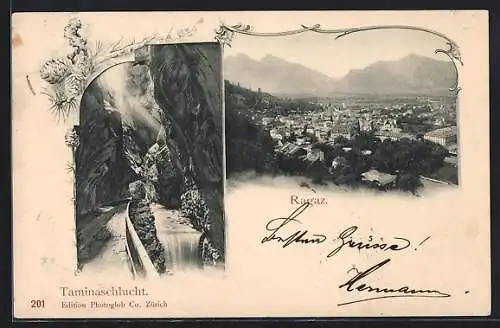 Ragaz.
Besten Grüsse!
Hermann
Taminaschlucht.
201 Edition Photoglob Co. Zürich